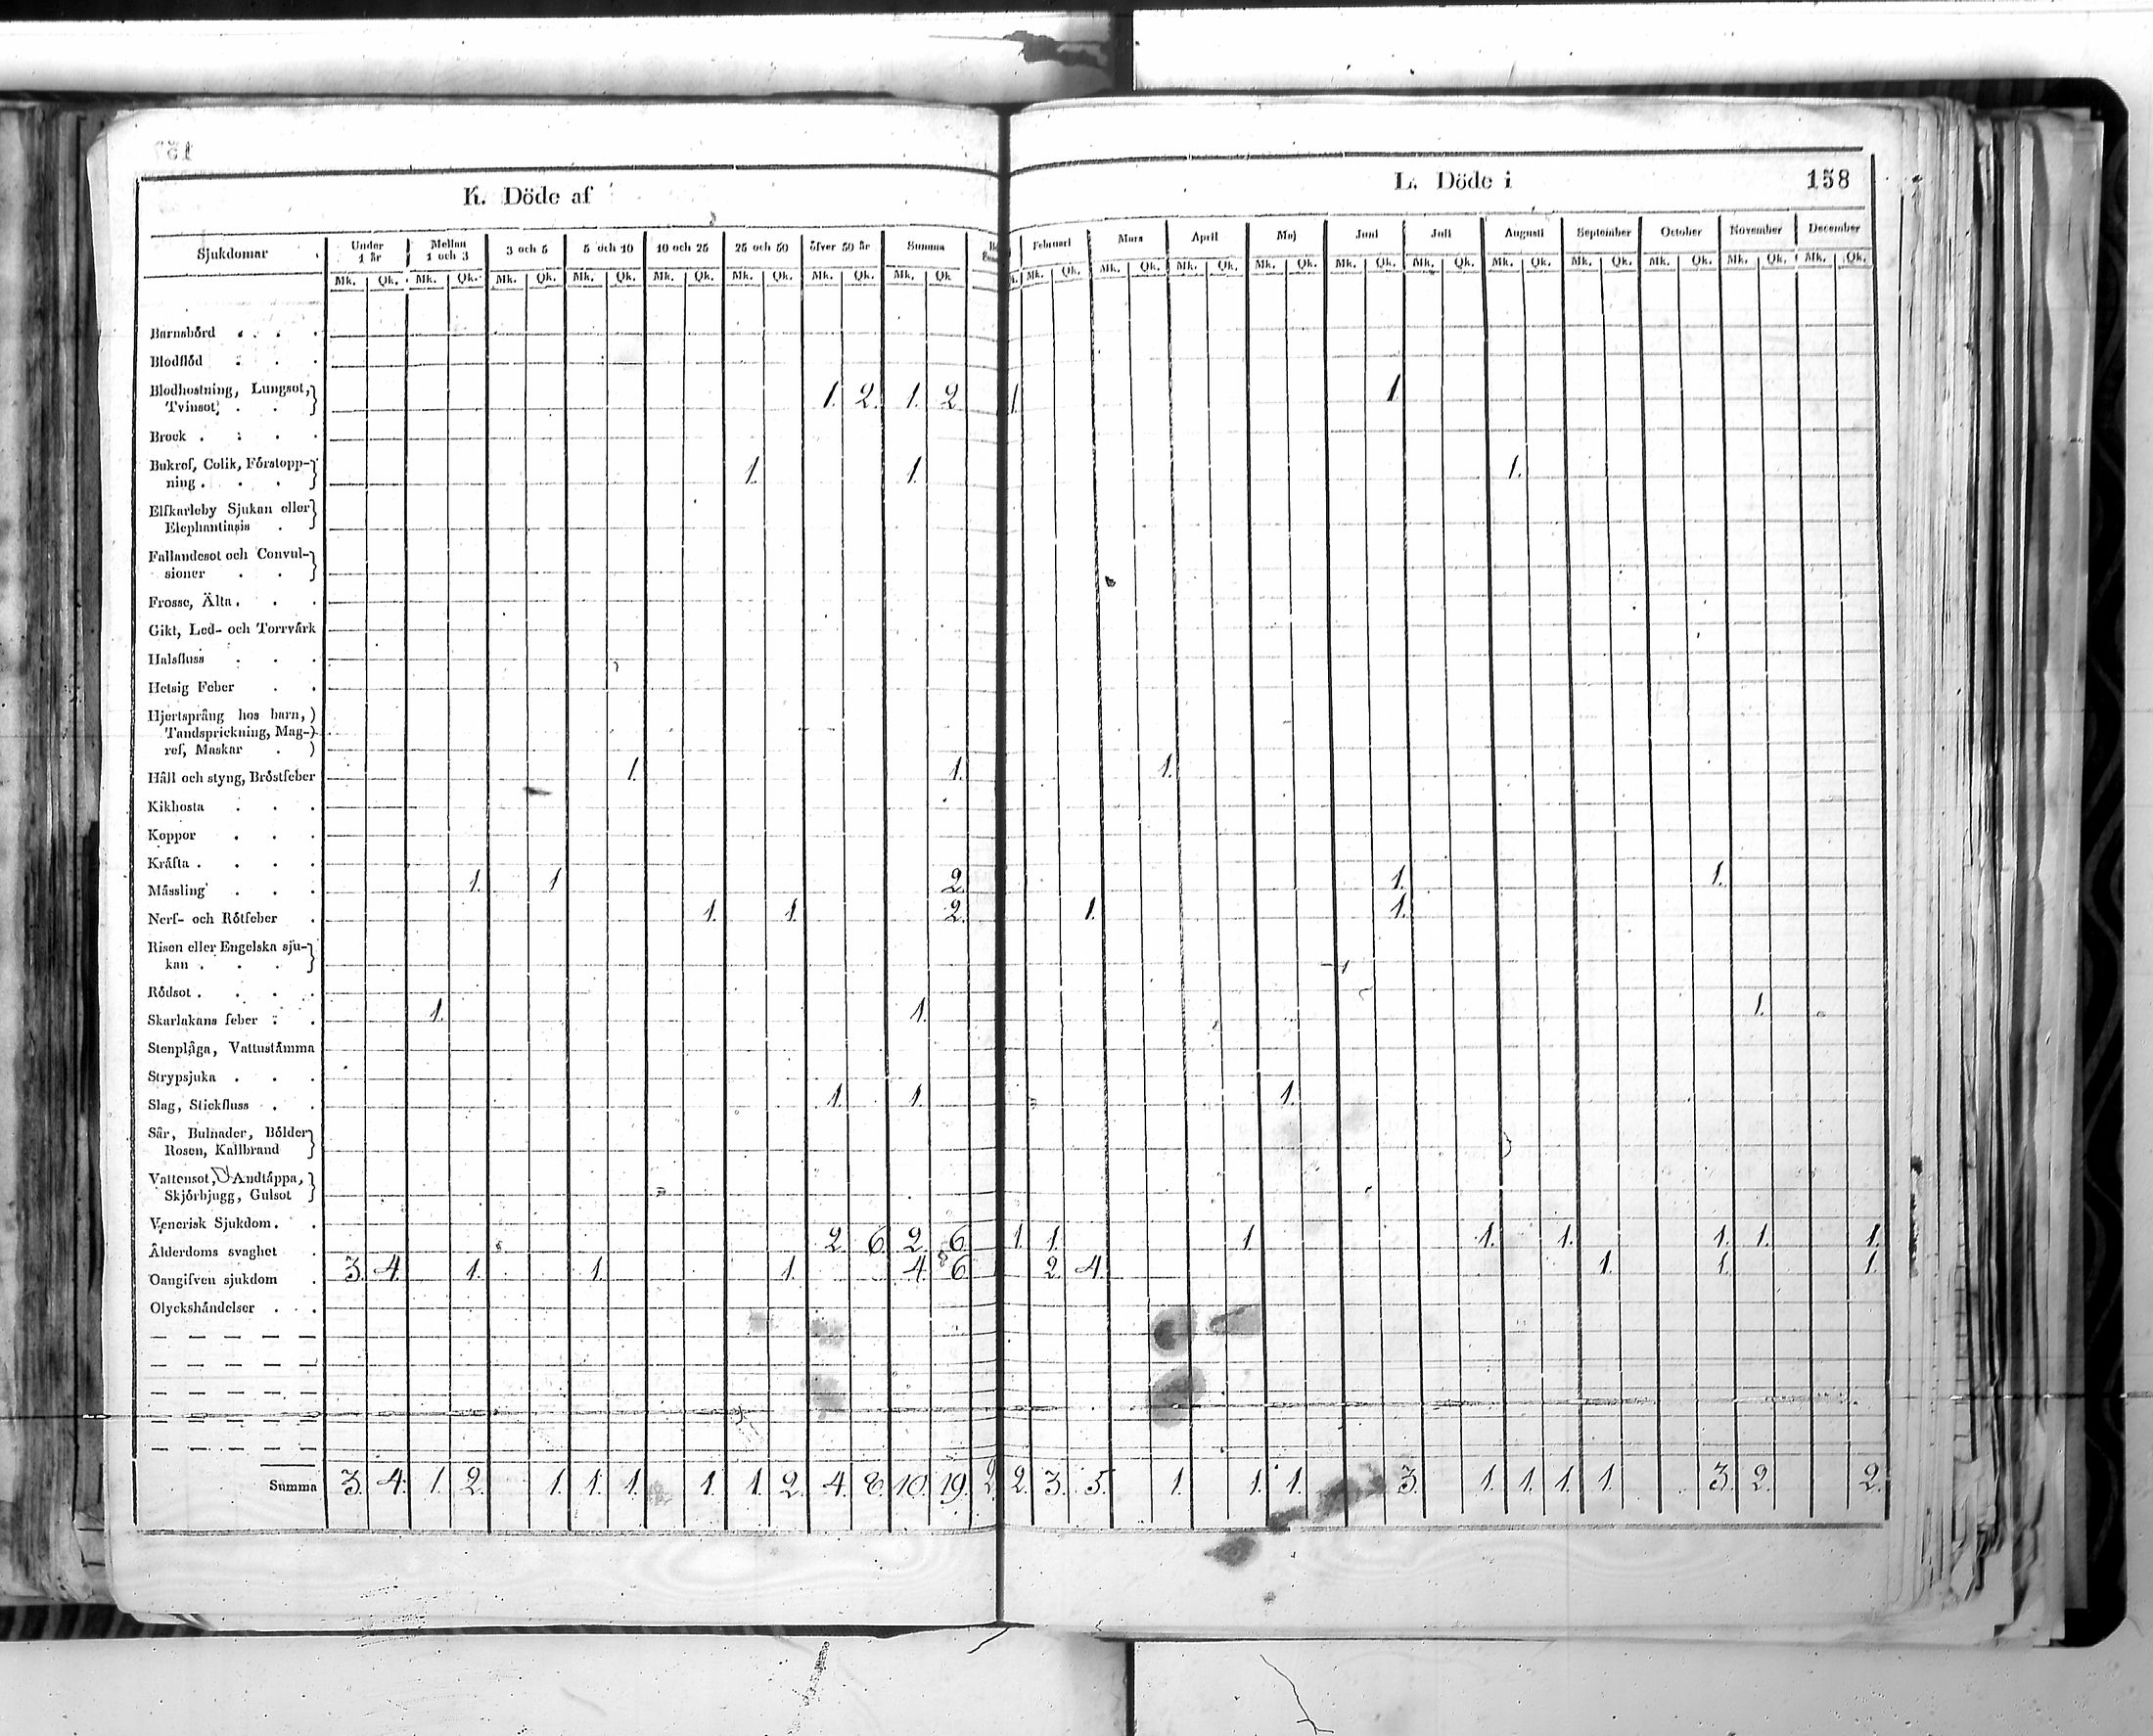 K. Döde af
Sjukdomar Under 1 år Mellan 1 och 3 3 och 5 5 och 10 10 och 25 25 och 50 öfver 50 år Summa
Mk. Qk. Mk. Qk. Mk. Qk. Mk. Qk. Mk. Qk. Mk. Qk. Mk. Qk. Mk. Qk
Barnsbörd . . .
Blodflöd . . .
Blodhostning, Lungsot,
Tvinsot, . . 1. 2. 1. 2
Brock . . . .
Bukref, Colik, Förstopp-
ning . . . 1. 1.
Elfkarleby Sjukan eller
Elephantiasis .
Fallandesot och Convul-
sioner . .
Frosse, Älta . . .
Gikt, Led- och Torrvärk
Halsfluss . . .
Hetsig Feber . .
Hjertsprång hos barn,
Tandsprickning, Mag-
ref, Maskar .
Håll och styng, Bröstfeber 1. 1.
Kikhosta . . .
Koppor . . .
Kräfta . . . .
Mässling . . . 1. 1 2.
Nerf- och Rötfeber . 1. 1. 2.
Risen eller Engelska sju-
kan . . .
Rödsot . . . .
Skarlakans feber . . 1. 1.
Stenplåga, Vattustämma
Strypsjuka . . .
Slag, Stickfluss . . 1. 1.
Sår, Bulnader, Bölder
Rosen, Kallbrand
Vattensot, Andtäppa,
Skjörbjugg, Gulsot
Venerisk Sjukdom . .
Ålderdoms svaghet . 2. 6. 2. 6.
Oangifven sjukdom . 3. 4. 1. 1. 1. 4. 6.
Olyckshändelser . .
Summa 3. 4. 1. 2. 1. 1. 1. 1. 1. 2. 4. 8. 10. 19. 2.
L. Döde i 158
Februari Mars April Maj Juni Juli Augusti September October November December
k. Mk. Qk. Mk. Qk. Mk. Qk. Mk. Qk. Mk. Qk. Mk. Qk. Mk. Qk. Mk. Qk. Mk. Qk. Mk. Qk. Mk. Qk.
1 1
1.
1.
1. 1.
1. 1.
1.
1.
1. 1. 1. 1. 1. 1. 1. 1.
2. 4. 1. 1. 1.
2. 3. 5. 1. 1. 1. 3. 1. 1. 1. 1. 3. 2. 2.